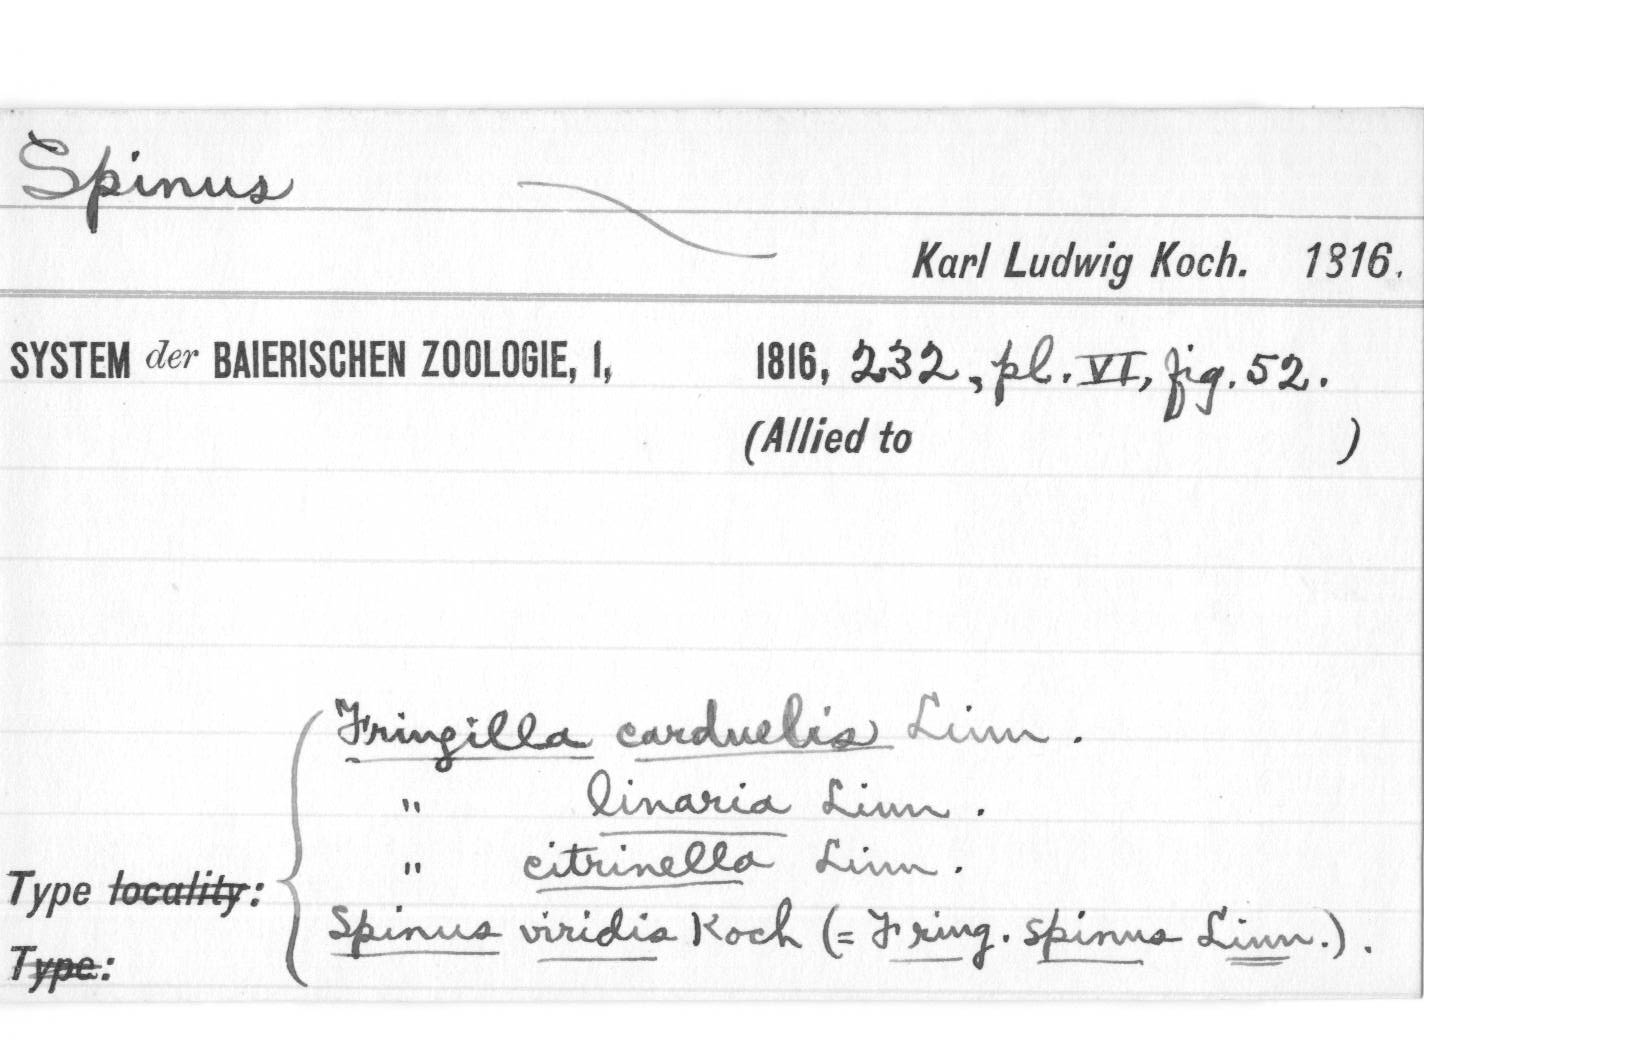 Spinus
Karl Ludwig Koch. 1816.
SYSTEM der BAIERISCHEN ZOOLOGIE, I, 1816, 232, pl. VI, fig. 52.
(Allied to )
Fringilla carduelis Linn.
" linaria Linn.
" citrinella Linn.
Type locality:
Spinus viridis Koch (= Fring. spinus Linn.).
Type: